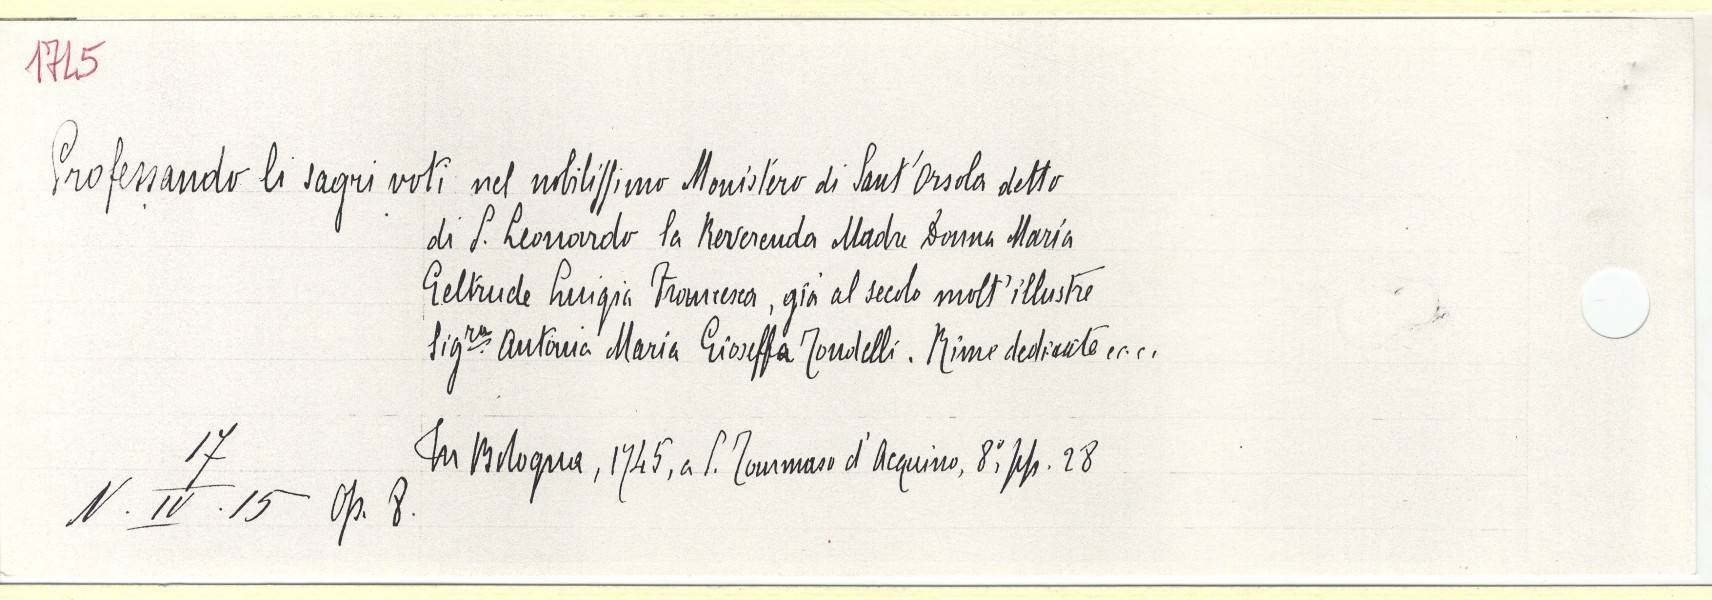 1745
Professando li sagri voti nel nobilissimo Monistero di Sant'Orsola detto
di S. Leonardo la Reverenda Madre Donna Maria
Geltrude Luigia Francesca, già al secolo molt'illustre
Sig.ra Antonia Maria Gioseffa Tondelli. Rime dedicate ecc.
In Bologna, 1745, a S. Tommaso d'Acquino, 8°, pp. 28
17
N. IV. 15 Op. 8.